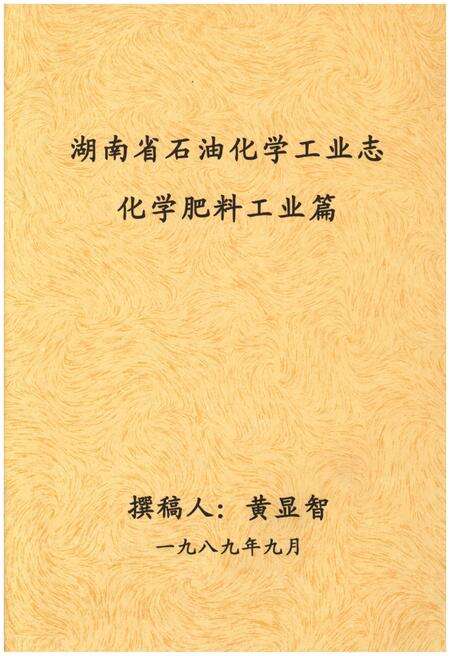 湖南省石油化学工业志
化学肥料工业篇
撰稿人：黄显智
一九八九年九月